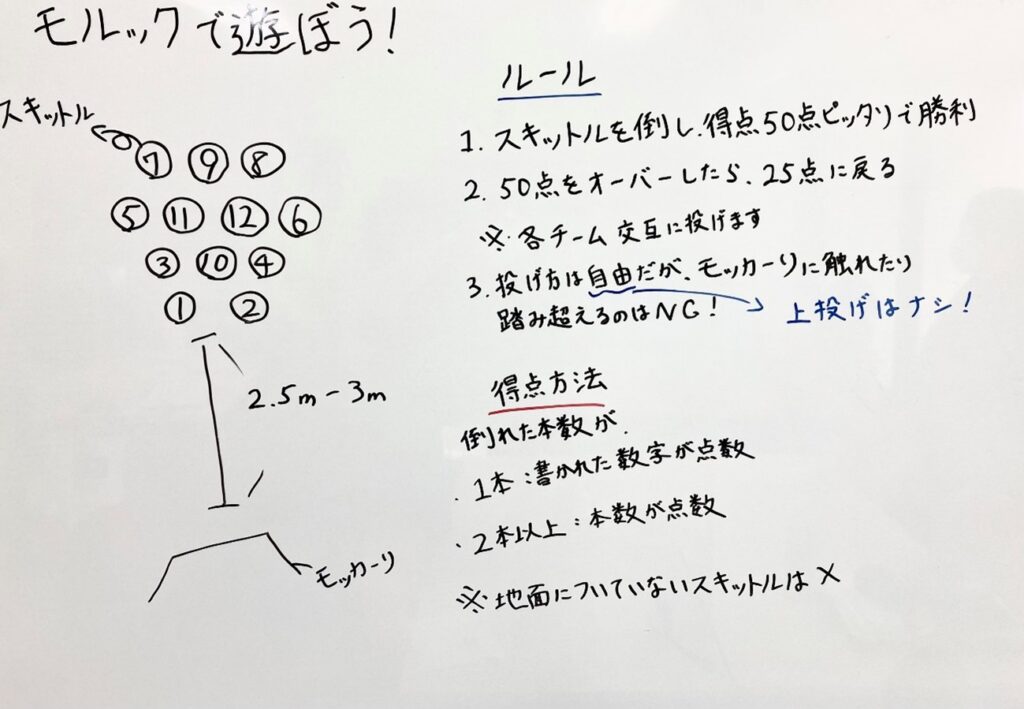 モルックで遊ぼう!
スキットル
⑦ ⑨ ⑧
⑤ ⑪ ⑫ ⑥
③ ⑩ ④
① ②
2.5m-3m
モッカーリ
ルール
1. スキットルを倒し、得点50点ピッタリで勝利
2. 50点をオーバーしたら、25点に戻る
※ 各チーム 交互に投げます
3. 投げ方は自由だが、モッカーリに触れたり
踏み超えるのはNG!
上投げはナシ!
得点方法
倒れた本数が、
・1本:書かれた数字が点数
・2本以上:本数が点数
※ 地面についていないスキットルは×